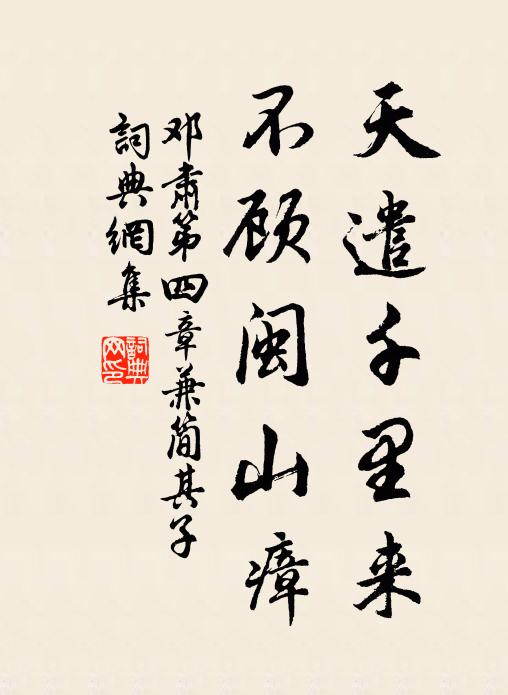 天遣千里来
不顾闽山瘴
邓肃第四章兼简其子
詞典網集
詞典
网印